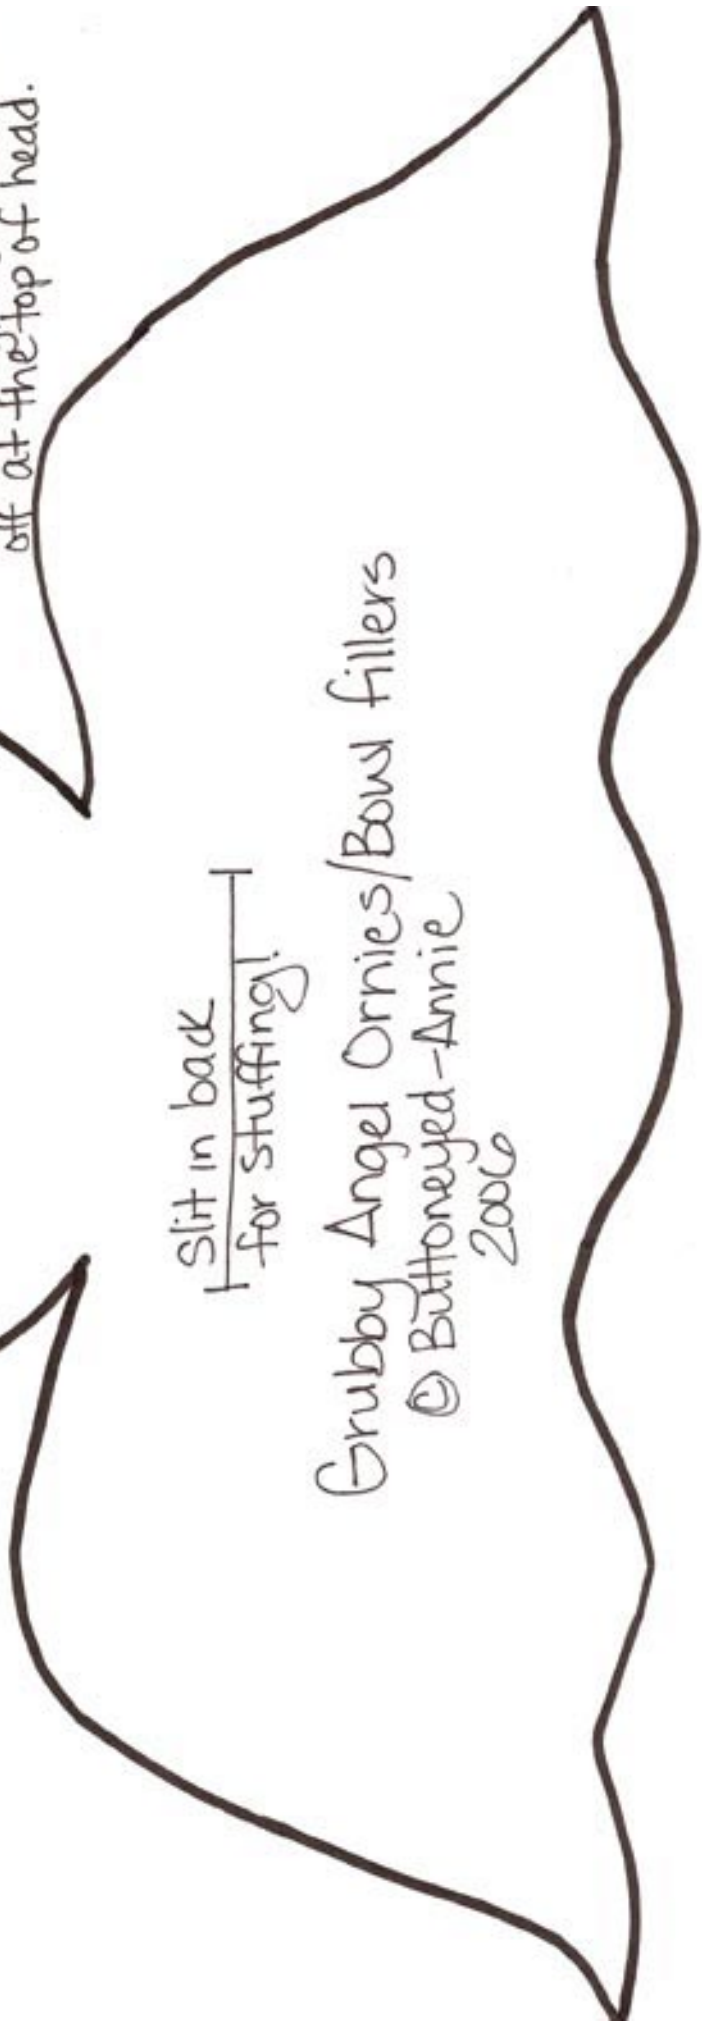 off at the top of head.
Slit in back
for stuffing!
Grubby Angel Ornies/Bowl fillers
© Buttoneyed-Annie
2006